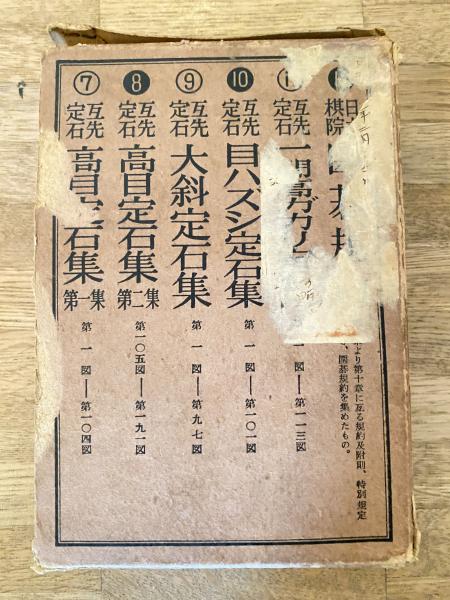 日
棋院
より第十章に亙る規約及附則、特別規定
、囲碁規約を集めたもの。
互先
定石
一間高ガカリ
第一一三図
⑩
互先
定石
目ハズシ定石集
第一図——第一〇一図
⑨
互先
定石
大斜定石集
第一図——第九七図
⑧
互先
定石
高目定石集
第二集
第一〇五図——第一九一図
⑦
互先
定石
高目定石集
第一集
第一図——第一〇四図